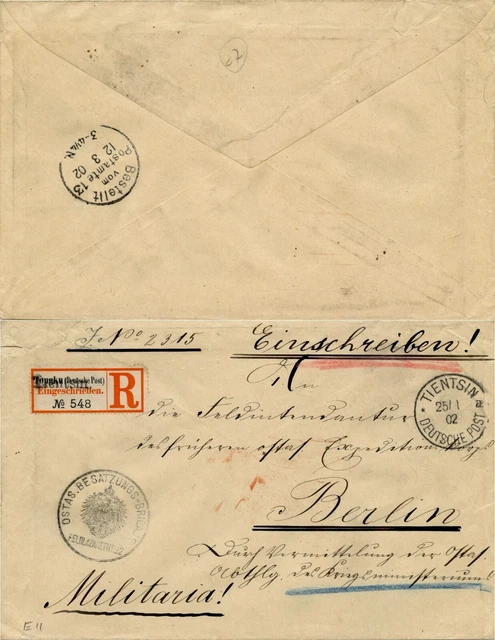 67
Bestellt
vom
Postamte 13
12 3 02
3-4¼N.
J. No 2315
Einschreiben!
An
Tongku (Deutsche Post)
Tientsin.
Eingeschrieben.
№ 548
R
die Feldintendantur
TIENTSIN
25/1
02
DEUTSCHE POST
des früheren ostas. Expeditionskorps
OSTAS. BESATZUNGS-BRIGADE
Berlin
Durch Vermittelung der Ostas.
Abthlg. des Kriegsministeriums
Militaria!
E 11